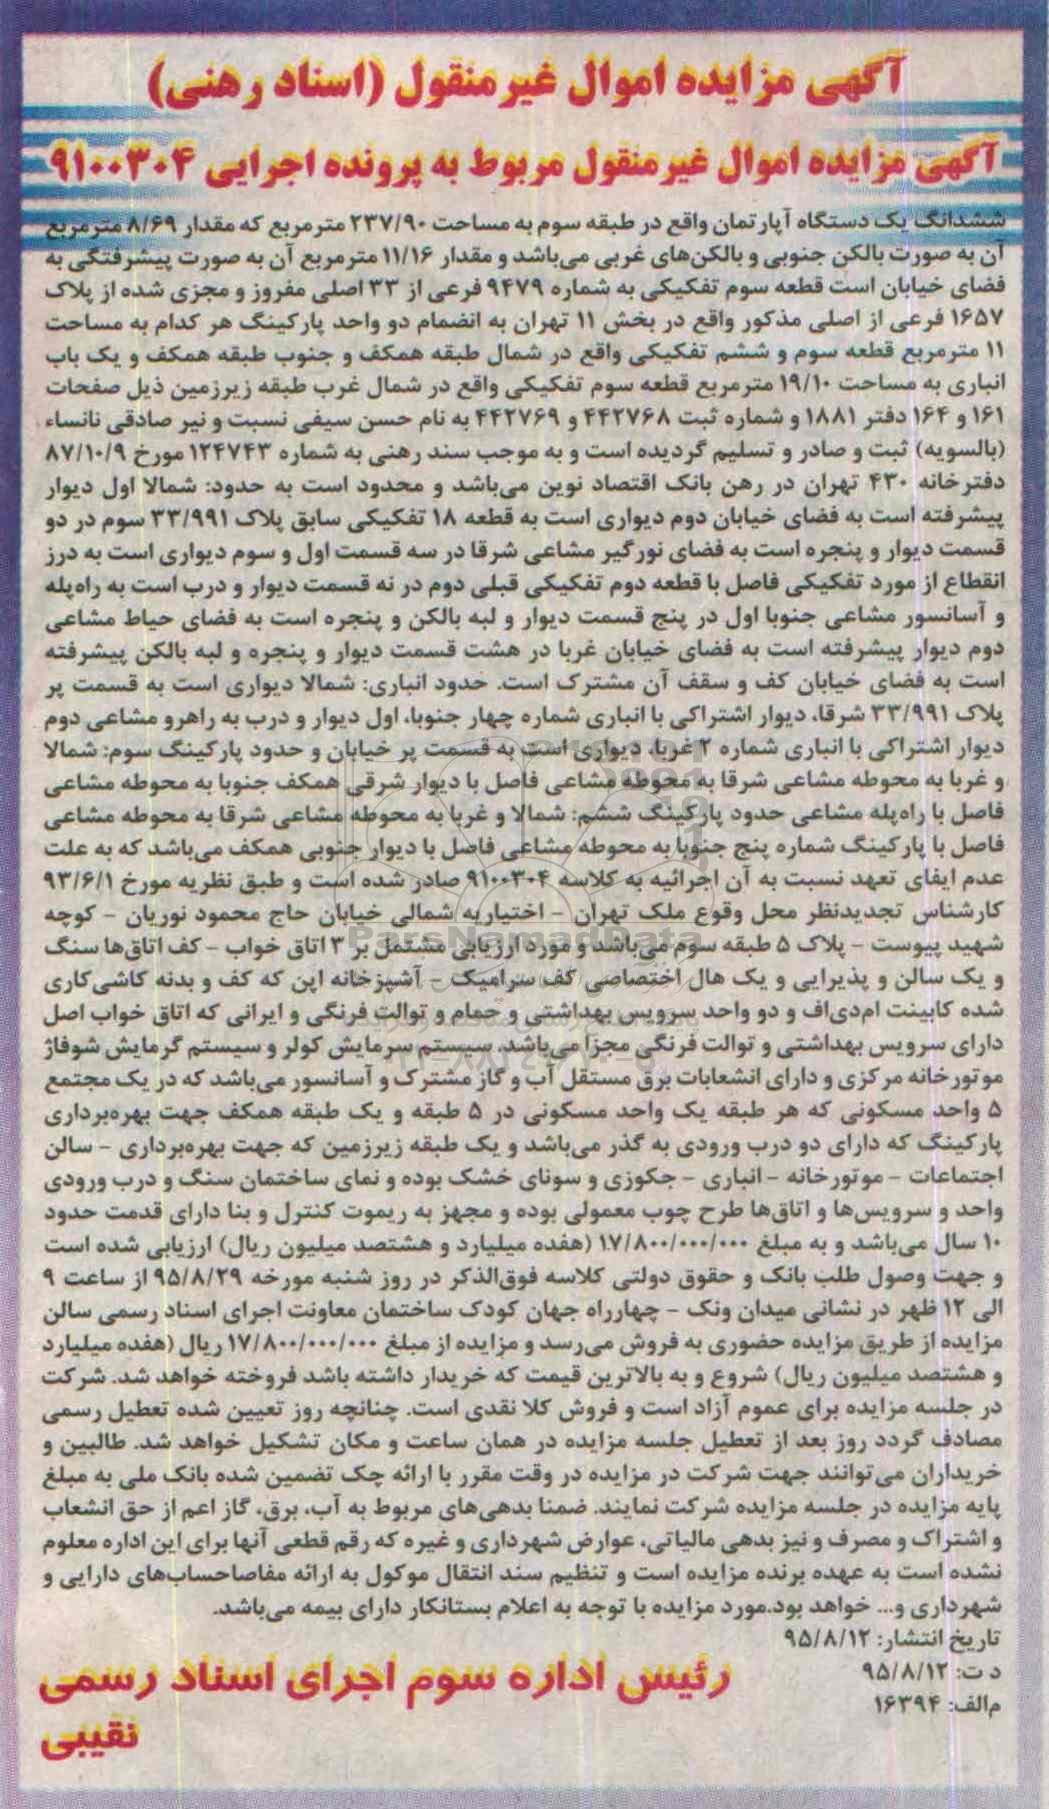 آگهی مزایده اموال غیرمنقول (اسناد رهنی)
آگهی مزایده اموال غیرمنقول مربوط به پرونده اجرایی ۹۱۰۰۳۰۴
ششدانگ یک دستگاه آپارتمان واقع در طبقه سوم به مساحت ۲۳۷/۹۰ مترمربع که مقدار ۸/۶۹ مترمربع
آن به صورت بالکن جنوبی و بالکن‌های غربی می‌باشد و مقدار ۱۱/۱۶ مترمربع آن به صورت پیشرفتگی به
فضای خیابان است قطعه سوم تفکیکی به شماره ۹۴۷۹ فرعی از ۳۳ اصلی مفروز و مجزی شده از پلاک
۱۶۵۷ فرعی از اصلی مذکور واقع در بخش ۱۱ تهران به انضمام دو واحد پارکینگ هر کدام به مساحت
۱۱ مترمربع قطعه سوم و ششم تفکیکی واقع در شمال طبقه همکف و جنوب طبقه همکف و یک باب
انباری به مساحت ۱۹/۱۰ مترمربع قطعه سوم تفکیکی واقع در شمال غرب طبقه زیرزمین ذیل صفحات
۱۶۱ و ۱۶۴ دفتر ۱۸۸۱ و شماره ثبت ۴۴۲۷۶۸ و ۴۴۲۷۶۹ به نام حسن سیفی نسبت و نیر صادقی نانساء
(بالسویه) ثبت و صادر و تسلیم گردیده است و به موجب سند رهنی به شماره ۱۲۴۷۴۳ مورخ ۸۷/۱۰/۹
دفترخانه ۴۳۰ تهران در رهن بانک اقتصاد نوین می‌باشد و محدود است به حدود: شمالا اول دیوار
پیشرفته است به فضای خیابان دوم دیواری است به قطعه ۱۸ تفکیکی سابق پلاک ۳۳/۹۹۱ سوم در دو
قسمت دیوار و پنجره است به فضای نورگیر مشاعی شرقا در سه قسمت اول و سوم دیواری است به درز
انقطاع از مورد تفکیکی فاصل با قطعه دوم تفکیکی قبلی دوم در نه قسمت دیوار و درب است به راه‌پله
و آسانسور مشاعی جنوبا اول در پنج قسمت دیوار و لبه بالکن و پنجره است به فضای حیاط مشاعی
دوم دیوار پیشرفته است به فضای خیابان غربا در هشت قسمت دیوار و پنجره و لبه بالکن پیشرفته
است به فضای خیابان کف و سقف آن مشترک است. حدود انباری: شمالا دیواری است به قسمت پر
پلاک ۳۳/۹۹۱ شرقا، دیوار اشتراکی با انباری شماره چهار جنوبا، اول دیوار و درب به راهرو مشاعی دوم
دیوار اشتراکی با انباری شماره ۲ غربا، دیواری است به قسمت پر خیابان و حدود پارکینگ سوم: شمالا
و غربا به محوطه مشاعی شرقا به محوطه مشاعی فاصل با دیوار شرقی همکف جنوبا به محوطه مشاعی
فاصل با راه‌پله مشاعی حدود پارکینگ ششم: شمالا و غربا به محوطه مشاعی شرقا به محوطه مشاعی
فاصل با پارکینگ شماره پنج جنوبا به محوطه مشاعی فاصل با دیوار جنوبی همکف می‌باشد که به علت
عدم ایفای تعهد نسبت به آن اجرائیه به کلاسه ۹۱۰۰۳۰۴ صادر شده است و طبق نظریه مورخ ۹۳/۶/۱
کارشناس تجدیدنظر محل وقوع ملک تهران - اختیاریه شمالی خیابان حاج محمود نوریان - کوچه
شهید پیوست - پلاک ۵ طبقه سوم می‌باشد و مورد ارزیابی مشتمل بر ۳ اتاق خواب - کف اتاق‌ها سنگ
و یک سالن و پذیرایی و یک هال اختصاصی کف سرامیک - آشپزخانه اپن که کف و بدنه کاشی‌کاری
شده کابینت ام‌دی‌اف و دو واحد سرویس بهداشتی و حمام و توالت فرنگی و ایرانی که اتاق خواب اصل
دارای سرویس بهداشتی و توالت فرنگی مجزا می‌باشد. سیستم سرمایش کولر و سیستم گرمایش شوفاژ
موتورخانه مرکزی و دارای انشعابات برق مستقل آب و گاز مشترک و آسانسور می‌باشد که در یک مجتمع
۵ واحد مسکونی که هر طبقه یک واحد مسکونی در ۵ طبقه و یک طبقه همکف جهت بهره‌برداری
پارکینگ که دارای دو درب ورودی به گذر می‌باشد و یک طبقه زیرزمین که جهت بهره‌برداری - سالن
اجتماعات - موتورخانه - انباری - جکوزی و سونای خشک بوده و نمای ساختمان سنگ و درب ورودی
واحد و سرویس‌ها و اتاق‌ها طرح چوب معمولی بوده و مجهز به ریموت کنترل و بنا دارای قدمت حدود
۱۰ سال می‌باشد و به مبلغ ۱۷/۸۰۰/۰۰۰/۰۰۰ (هفده میلیارد و هشتصد میلیون ریال) ارزیابی شده است
و جهت وصول طلب بانک و حقوق دولتی کلاسه فوق‌الذکر در روز شنبه مورخه ۹۵/۸/۲۹ از ساعت ۹
الی ۱۲ ظهر در نشانی میدان ونک - چهارراه جهان کودک ساختمان معاونت اجرای اسناد رسمی سالن
مزایده از طریق مزایده حضوری به فروش می‌رسد و مزایده از مبلغ ۱۷/۸۰۰/۰۰۰/۰۰۰ ریال (هفده میلیارد
و هشتصد میلیون ریال) شروع و به بالاترین قیمت که خریدار داشته باشد فروخته خواهد شد. شرکت
در جلسه مزایده برای عموم آزاد است و فروش کلا نقدی است. چنانچه روز تعیین شده تعطیل رسمی
مصادف گردد روز بعد از تعطیل جلسه مزایده در همان ساعت و مکان تشکیل خواهد شد. طالبین و
خریداران می‌توانند جهت شرکت در مزایده در وقت مقرر با ارائه چک تضمین شده بانک ملی به مبلغ
پایه مزایده در جلسه مزایده شرکت نمایند. ضمنا بدهی‌های مربوط به آب، برق، گاز اعم از حق انشعاب
و اشتراک و مصرف و نیز بدهی مالیاتی، عوارض شهرداری و غیره که رقم قطعی آنها برای این اداره معلوم
نشده است به عهده برنده مزایده است و تنظیم سند انتقال موکول به ارائه مفاصاحساب‌های دارایی و
شهرداری و... خواهد بود.مورد مزایده با توجه به اعلام بستانکار دارای بیمه می‌باشد.
تاریخ انتشار: ۹۵/۸/۱۲
د ت: ۹۵/۸/۱۲
م‌الف: ۱۶۳۹۴
رئیس اداره سوم اجرای اسناد رسمی
نقیبی
ParsNamadData